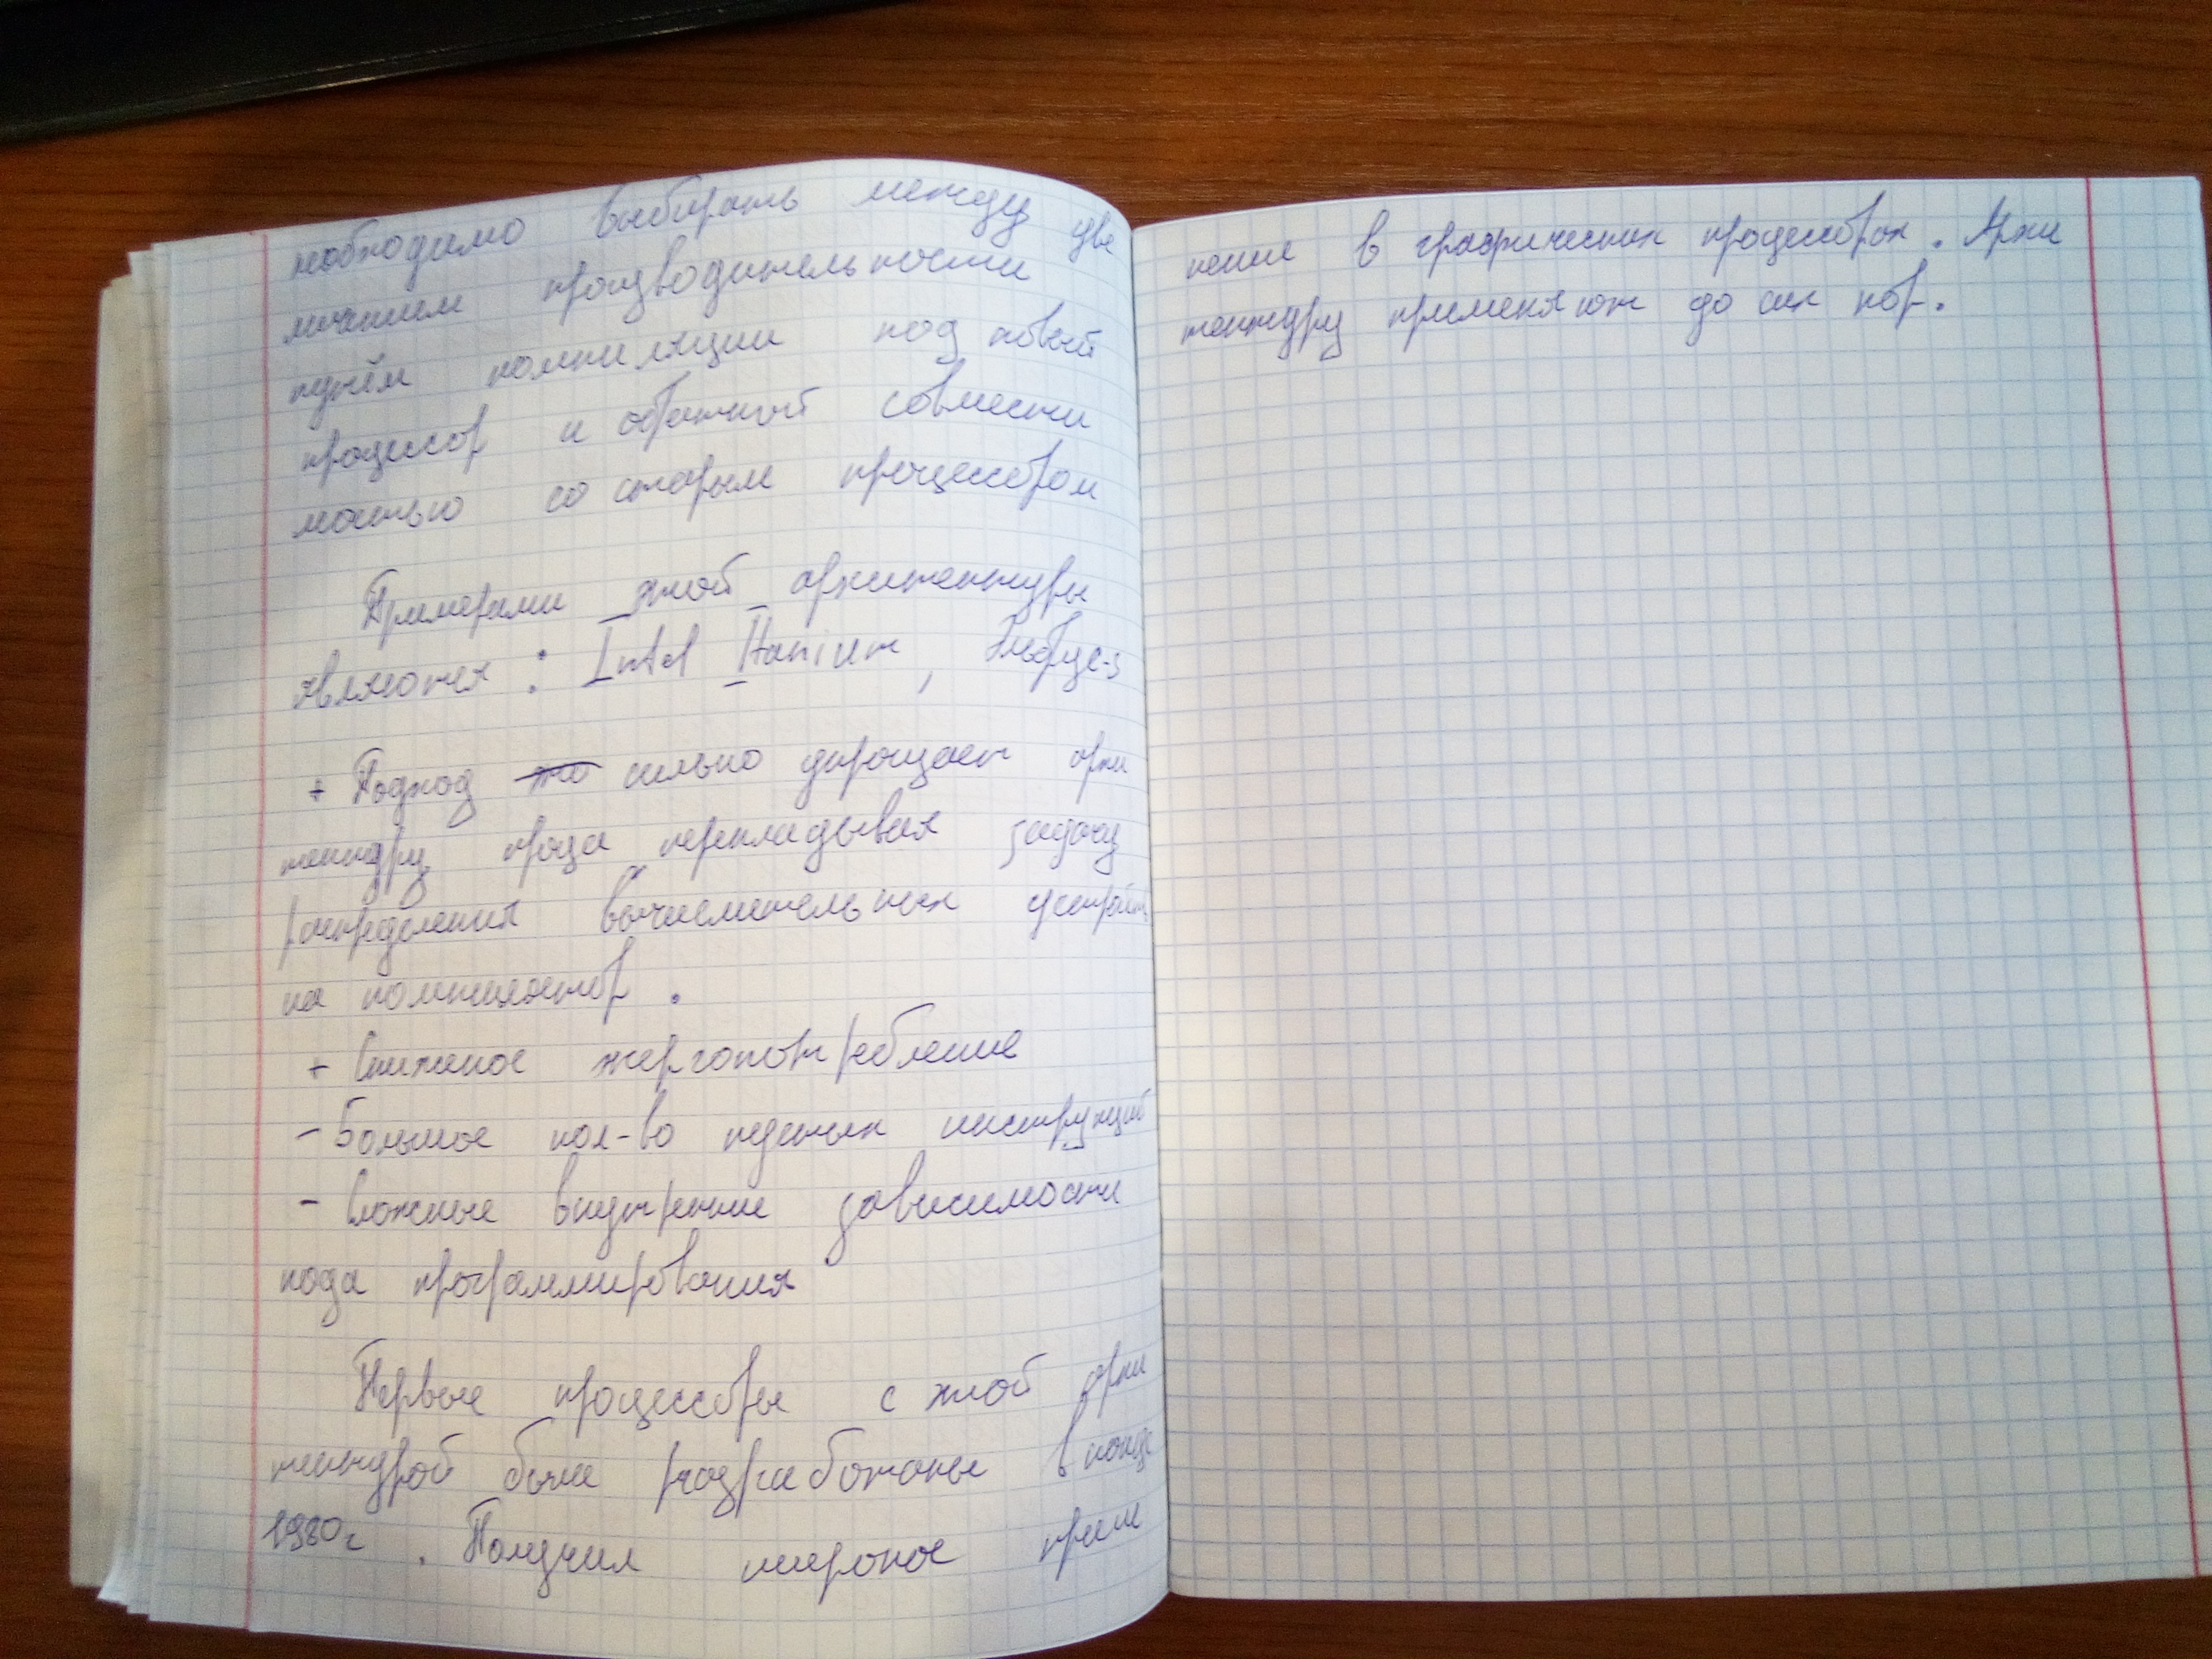 необходимо выбирать между уве
личением производительности
путём компиляции под новый
процессор и обратной совмести
мостью со старым процессором
Примерами этой архитектуры
являются : Intel Itanium, Эльбрус-3
+ Подход сильно упрощает архи
тектуру проца перекладывая задачу
распределения вычислительных устройств
на компилятор .
+ Сниженое энергопотребление
- Большое кол-во пустых инструкций
- Сложные внутренние зависимости
кода программирования
Первые процессоры с этой архи
тектурой были разработаны в конце
1980г . Получил широкое приме
нение в графических процессорах . Архи
тектуру применяют до сих пор.